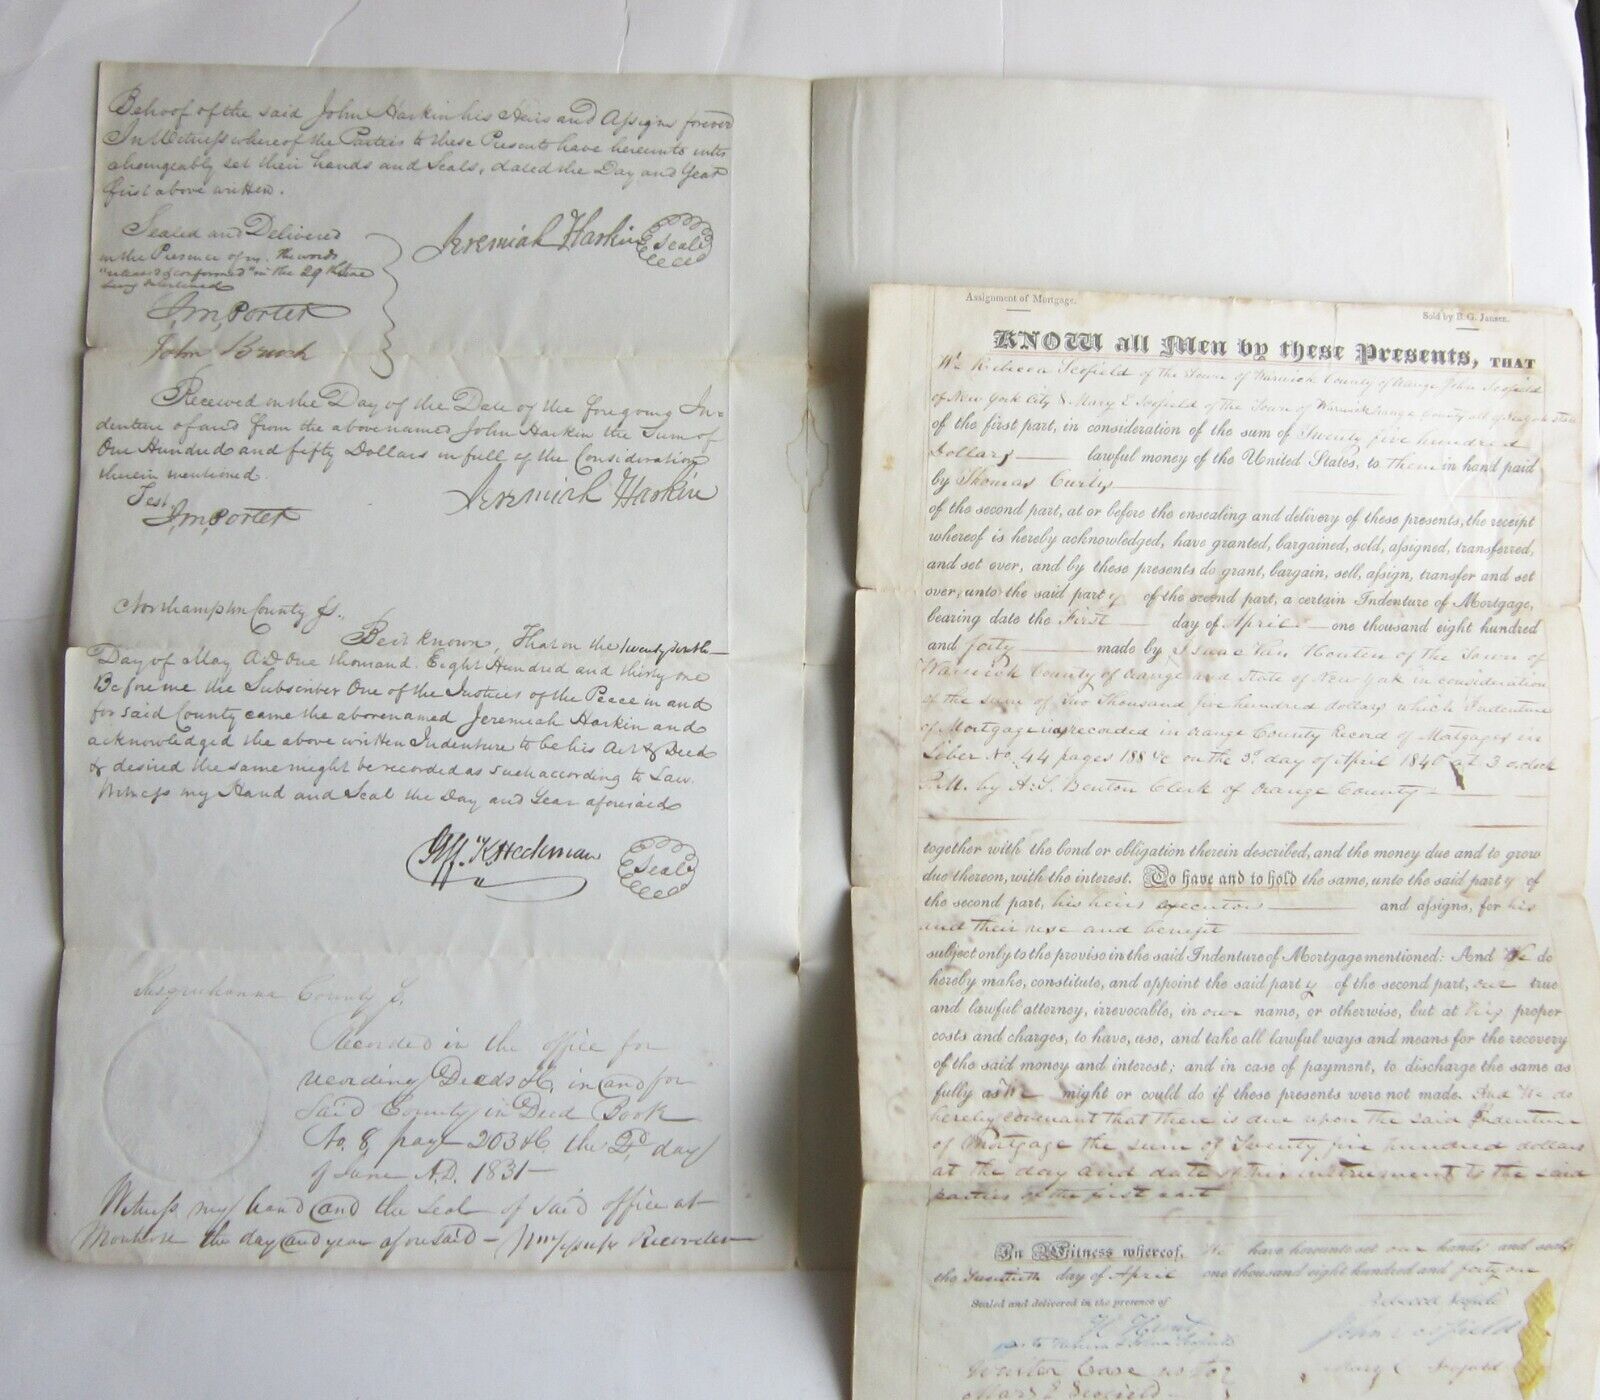 Behoof of the said John Harkin his Heirs and Assigns forever
In Witness whereof the Parties to these Presents have hereunto inter
changeably set their hands and Seals, dated the Day and Year
first above written.
Sealed and Delivered
in the Presence of us. the words
in the 29th line
being interlined
Jeremiah Harkin Seal
J,m, Porter
John Brush
Received on the Day of the Date of the foregoing In-
denture of and from the above named John Harkin the Sum of
One Hundred and fifty Dollars in full of the Consideration
therein mentioned.
Test
Jeremiah Harkin
J,m, Porter
Northampton County Ss.
Be it Known, That on the twenty
Day of May AD One thousand Eight Hundred and thirty one
Before me the Subscriber One of the Justices of the Peace in and
for said County came the above named Jeremiah Harkin and
acknowledged the above written Indenture to be his Act & Deed
& desired the same might be recorded as such according to Law.
Witness my Hand and Seal the Day and Year aforesaid
Heckman Seal
Susquehanna County Ss.
Recorded in the office for
recording Deeds &c, in and for
said County in Deed Book
No. 8, page 203 &c the 2d, day
of June A.D. 1831-
Witness my hand and the seal of said office at
Montrose the day and year aforesaid - Recorder
Assignment of Mortgage.
Sold by B. G. Jansen.
KNOW all Men by these Presents, THAT
We Rebecca Scofield of the Town of Warwick County of Orange John Scofield
of New York City & Mary E Scofield of the Town of Warwick Orange County all of New York State
of the first part, in consideration of the sum of Twenty five hundred
Dollars lawful money of the United States, to them in hand paid
by Thomas
of the second part, at or before the ensealing and delivery of these presents, the receipt
whereof is hereby acknowledged, have granted, bargained, sold, assigned, transferred,
and set over, and by these presents do grant, bargain, sell, assign, transfer and set
over, unto the said party of the second part, a certain Indenture of Mortgage,
bearing date the First day of April one thousand eight hundred
and forty made by Isaac Van Houten of the Town of
Warwick County of Orange and State of New York in consideration
of the sum of Two Thousand five hundred dollars which Indenture
of Mortgage was recorded in Orange County Record of Mortgages in
Liber No. 44 pages 188 &c on the 3d. day of April 1840 at 3 o,clock
P.M. by A. S. Benton Clerk of Orange County
together with the bond or obligation therein described, and the money due and to grow
due thereon, with the interest. To have and to hold the same, unto the said party of
the second part, his heirs executors and assigns, for his
and their use and benefit
subject only to the proviso in the said Indenture of Mortgage mentioned: And We do
hereby make, constitute, and appoint the said party of the second part, our true
and lawful attorney, irrevocable, in our name, or otherwise, but at his proper
costs and charges, to have, use, and take all lawful ways and means for the recovery
of the said money and interest; and in case of payment, to discharge the same as
fully as We might or could do if these presents were not made. And We do
hereby covenant that there is due upon the said Indenture
of Mortgage the sum of Twenty five hundred dollars
at the day and date of this instrument to the said
parties of the first part
In Witness whereof, We have hereunto set our hands and seals
the Twentieth day of April one thousand eight hundred and forty one
Sealed and delivered in the presence of
Rebecca Scofield
John Scofield
Mary E Scofield
Case as to
Mary E Scofield